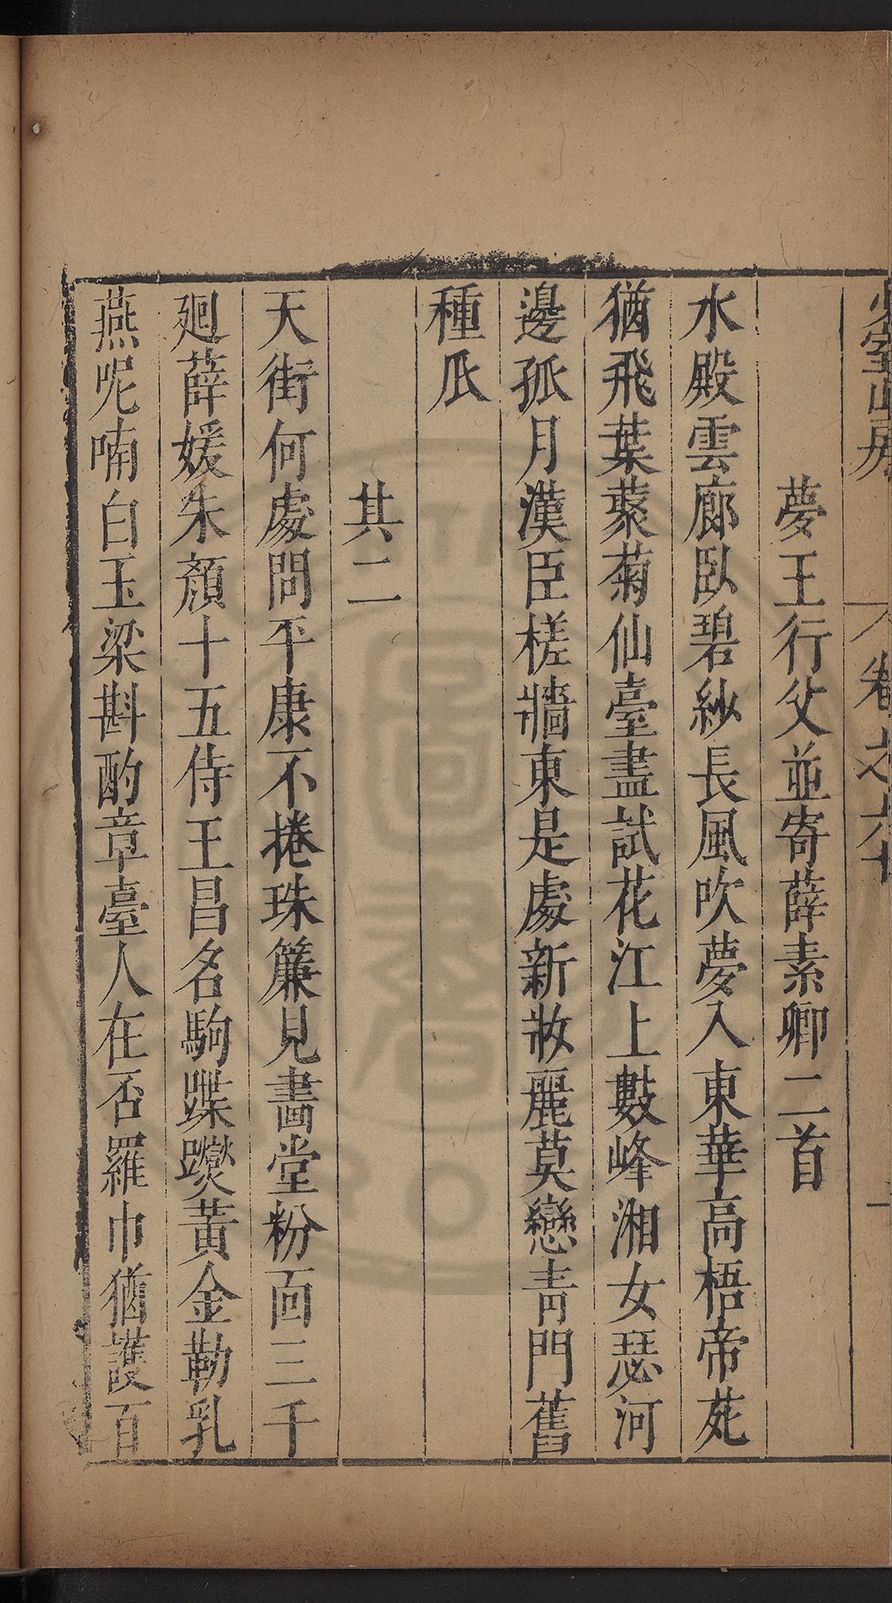 少室山房
卷之六十
一
夢王行父並寄薛素卿二首
水殿雲廊臥碧紗長風吹夢入東華高梧帝苑
猶飛葉蘂菊仙臺盡試花江上數峰湘女瑟河
邊孤月漢臣槎牆東是處新妝麗莫戀青門舊
種瓜
其二
天街何處問平康不捲珠簾見畵堂粉面三千
廻薛媛朱顏十五侍王昌名駒蹀躞黃金勒乳
燕呢喃白玉梁斟酌章臺人在否羅巾猶護百